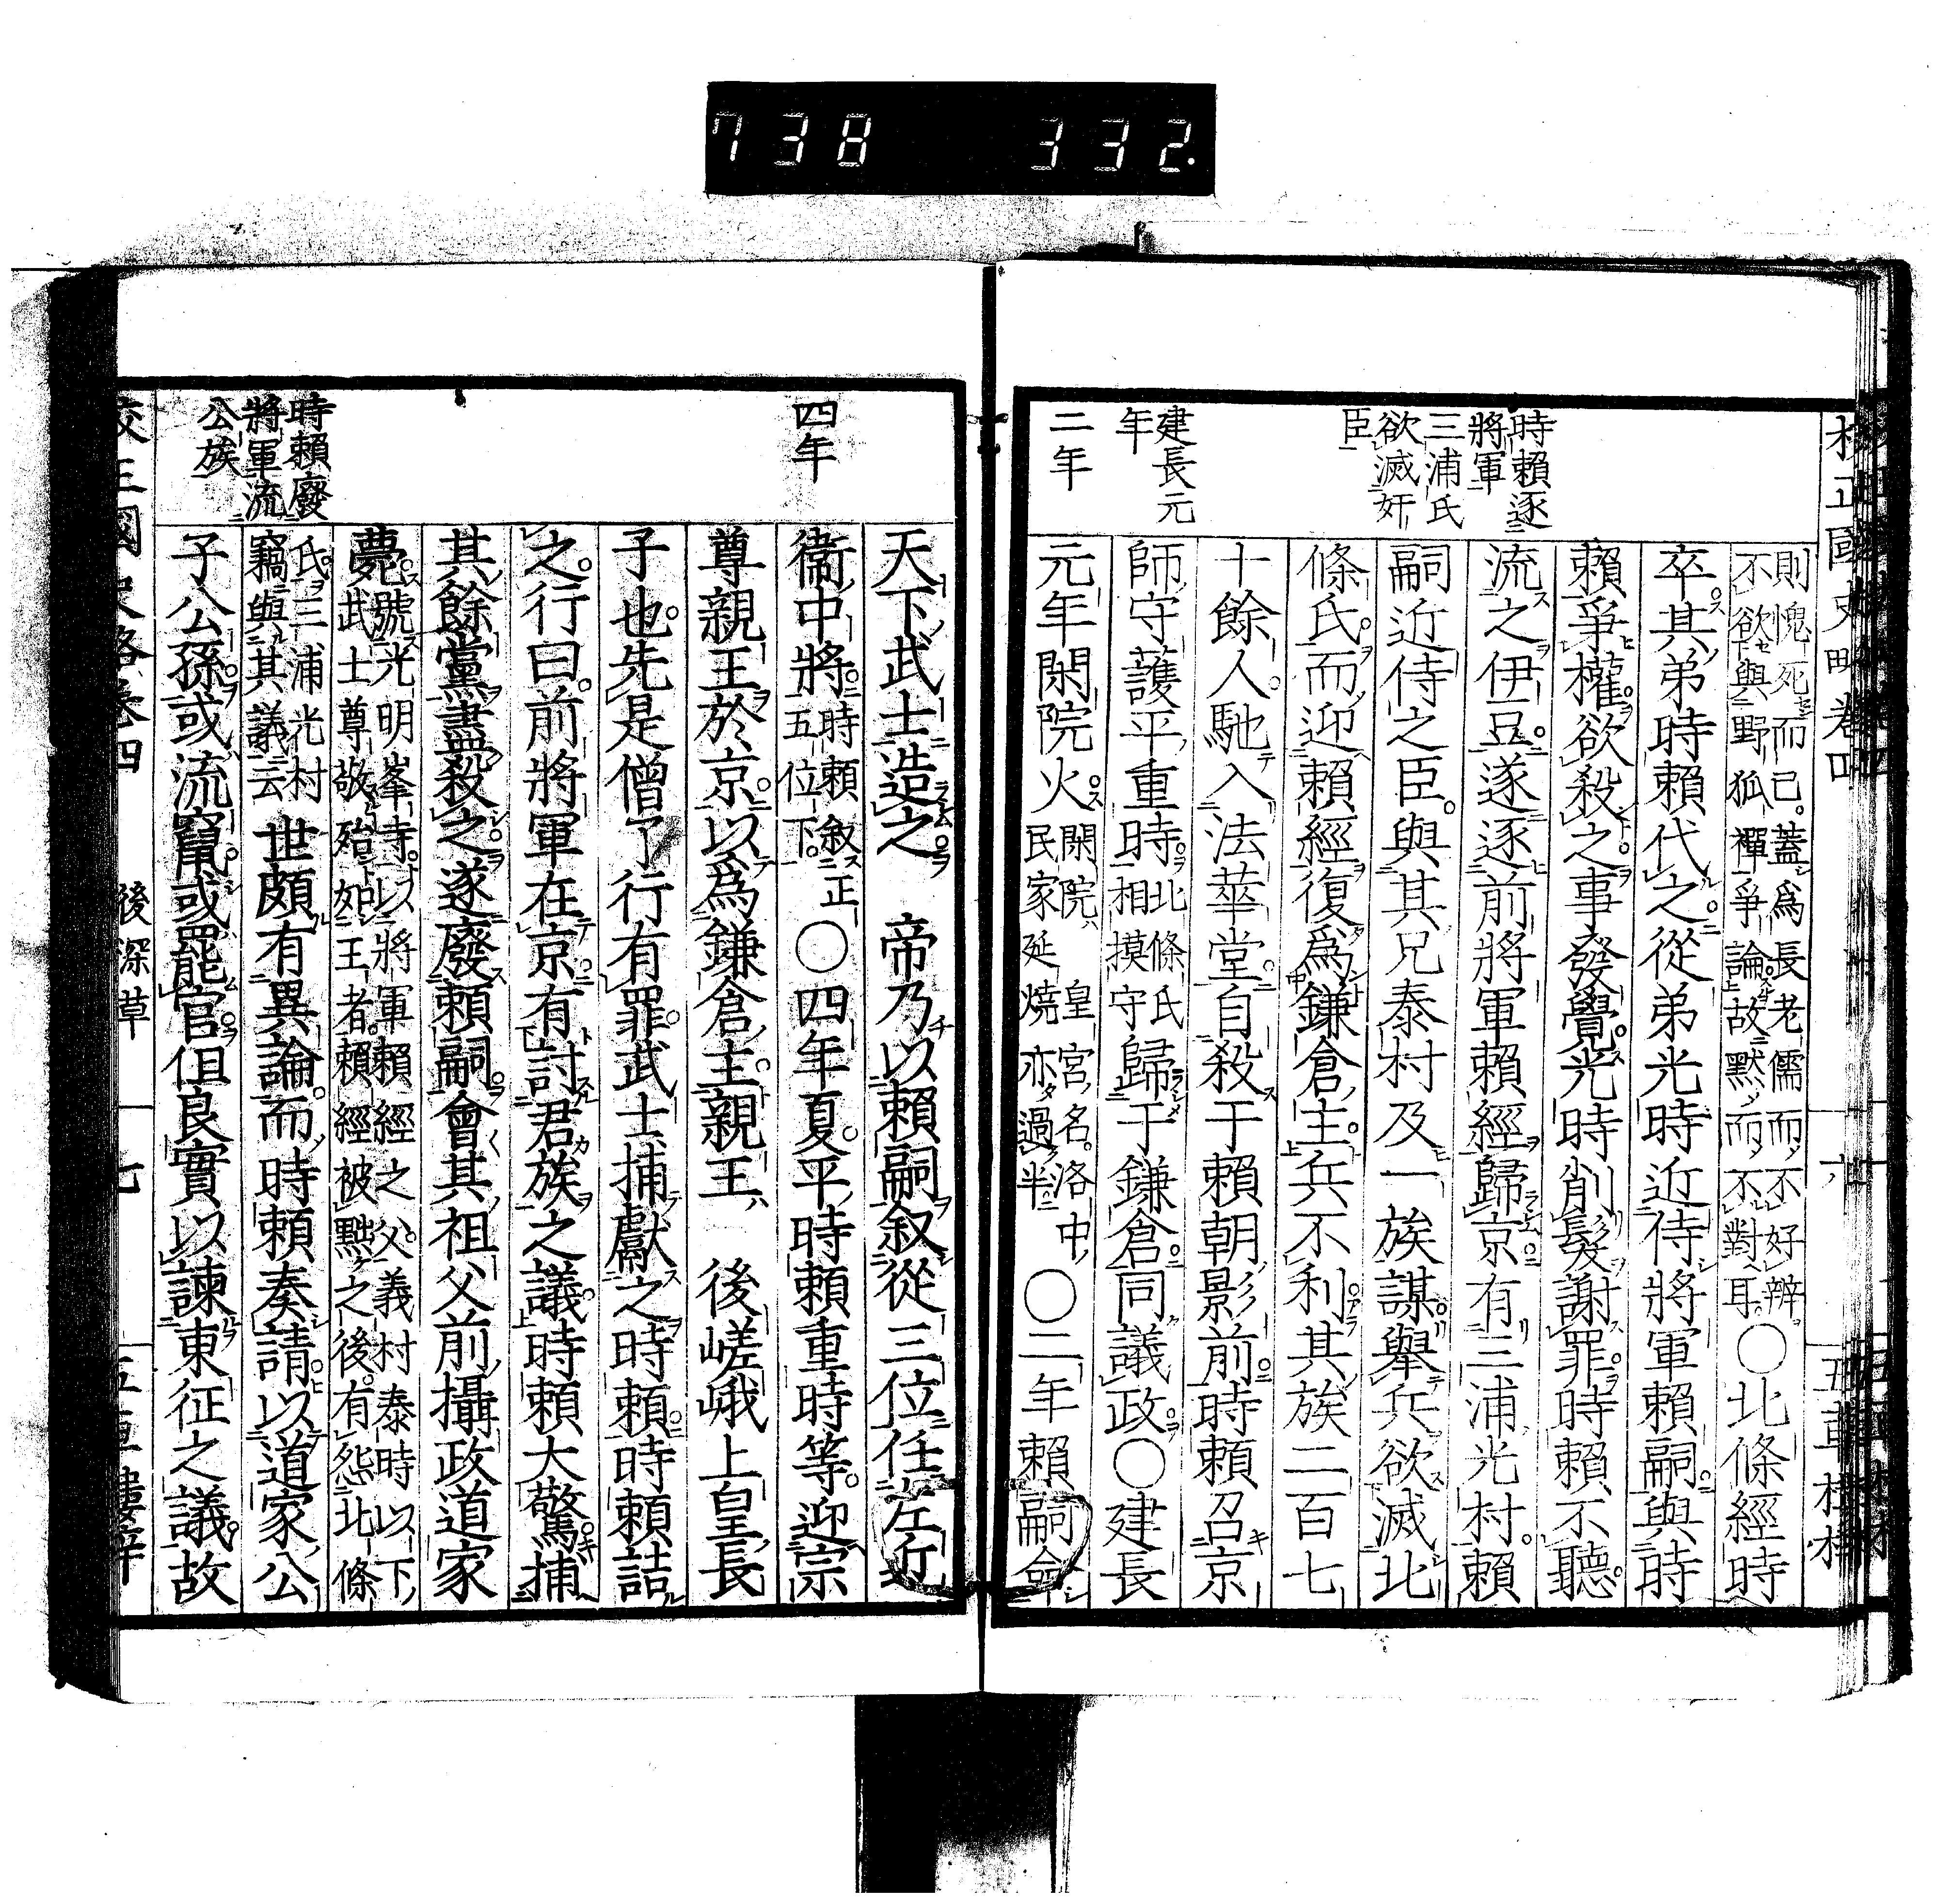 738 332.
校正國史略卷四
五車樓梓
時賴逐
將軍
三浦氏
欲滅奸
臣
建長元
年
二年
則愧死而已。蓋爲長老儒而不好辨
不欲與野狐禪爭論故默而不對耳。〇北條經時
卒其弟時賴代之從弟光時近侍將軍賴嗣與時
賴爭權欲殺之事發覺光時削髮謝罪時賴不聽。
流之伊豆遂逐前將軍賴經歸京有三浦光村。賴
嗣近侍之臣。與其兄泰村及一族謀舉兵欲滅北
條氏。而迎賴經復爲鎌倉主。兵不利其族二百七
十餘人。馳入法華堂自殺于賴朝影前時賴召京
師守護平重時北條氏
相摸守歸于鎌倉同議政〇建長
元年閑院火閑院皇宮名。洛中
民家延燒亦過半〇二年賴嗣命
四年
時賴廢
將軍流
公族
天下武士造之 帝乃以賴嗣叙從三位任左近
衞中將時賴叙正
五位下。〇四年夏。平時賴重時等。迎宗
尊親王於京以爲鎌倉主親王 後嵯峨上皇長
子也。先是僧了行有罪武士捕獻之時賴時賴詰
之。行曰。前將軍在京有討君族之議時賴大驚捕
其餘黨盡殺之遂廢賴嗣會其祖父前攝政道家
薨號光明峯寺。以將軍賴經之父。義村泰時以下
武士尊敬殆如王者。賴經被黜之後。有怨北條
氏三浦光村
竊與其議云 世頗有異論。而時賴奏請以道家公
子公孫或流竄或罷官但良實以諫東征之議。故
校正國史略卷四 後深草 十七 五車樓梓